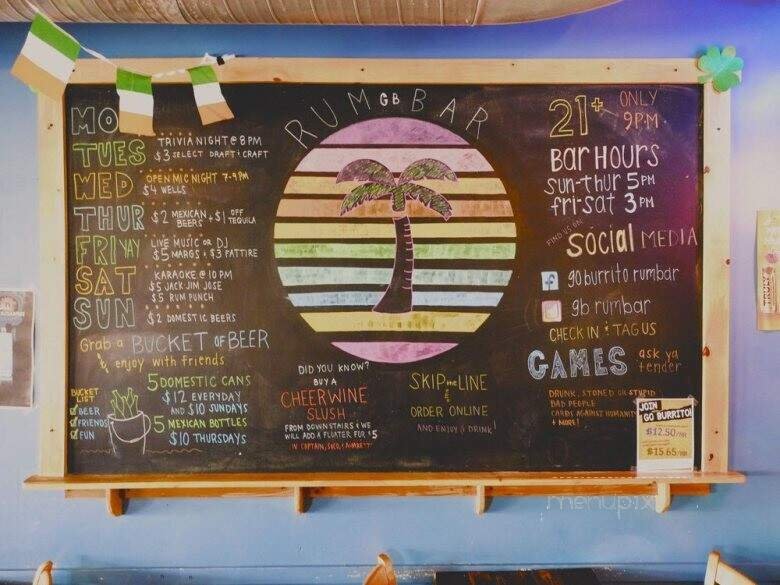 RUM GB BAR
MO
TUES
TRIVIA NIGHT @ 8 PM
$3 SELECT DRAFT + CRAFT
WED
OPEN MIC NIGHT 7-9 PM
$4 WELLS
THUR
$2 MEXICAN BEERS + $1 OFF TEQUILA
FRI YAY
LIVE MUSIC OR DJ
$5 MARGS + $3 PATTIRE
SAT
KARAOKE @ 10 PM
$5 JACK JIM JOSE
$5 RUM PUNCH
SUN
$2 DOMESTIC BEERS
Grab a BUCKET OF BEER
& enjoy with friends
BUCKET
LIST
BEER
FRIENDS
FUN
5 DOMESTIC CANS
$12 EVERYDAY
AND $10 SUNDAYS
5 MEXICAN BOTTLES
$10 THURSDAYS
DID YOU KNOW?
BUY A
CHEERWINE
SLUSH
FROM DOWNSTAIRS & WE
WILL ADD A FLOATER FOR $5
SKIP the LINE
&
ORDER ONLINE
AND ENJOY A DRINK!
21+ ONLY
9P.M.
BAR HOURS
sun-thur 5PM
fri-sat 3PM
FIND US ON
social MEDIA
f goburrito rumbar
gb rumbar
CHECK IN & TAG US
GAMES ask ya
tender
DRUNK, STONED OR STUPID
BAD PEOPLE
CARDS AGAINST HUMANITY
+ MORE!
JOIN
GO BURRITO!
$12.50/HR
$15.65/HR
TRULY
menupix